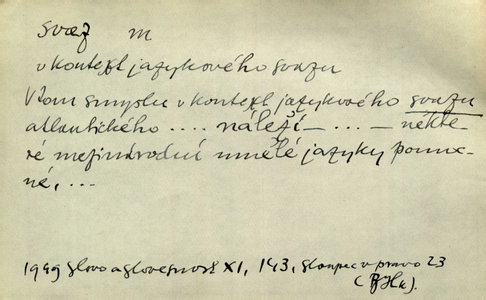 svaz m
v kontext jazykového svazu
V tom smyslu v kontext jazykového svazu
atlantického .... náleží – ... – někte-
ré mezinárodní umělé jazyky pomoc-
né, ...
1949 Slovo a slovesnost XI, 143, sloupec v pravo 23